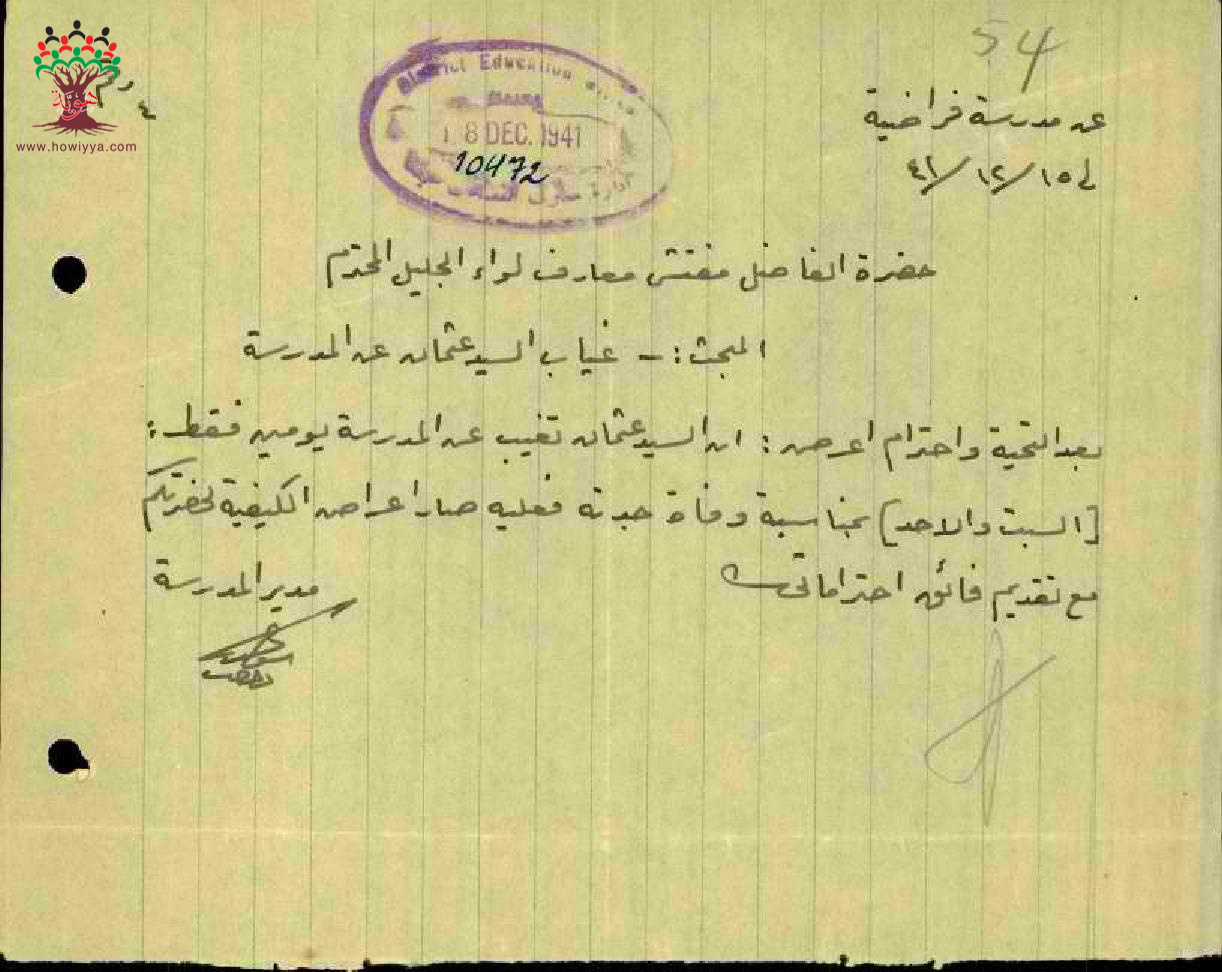 54
عن مدرسة فراضية
في ١٥/١٢/٤١
District Education Office
18 DEC. 1941
10472
www.howiyya.com
حضرة الفاضل مفتش معارف لواء الجليل المحترم
المبحث :- غياب السيد عثمان عن المدرسة
بعد التحية واحترام اعرض : ان السيد عثمان تغيب عن المدرسة يومين فقط :
[السبت والاحد] بمناسبة وفاة جدته فعليه صار اعراض الكيفية لحضرتكم
مع تقديم فائق احتراماتي
مدير المدرسة